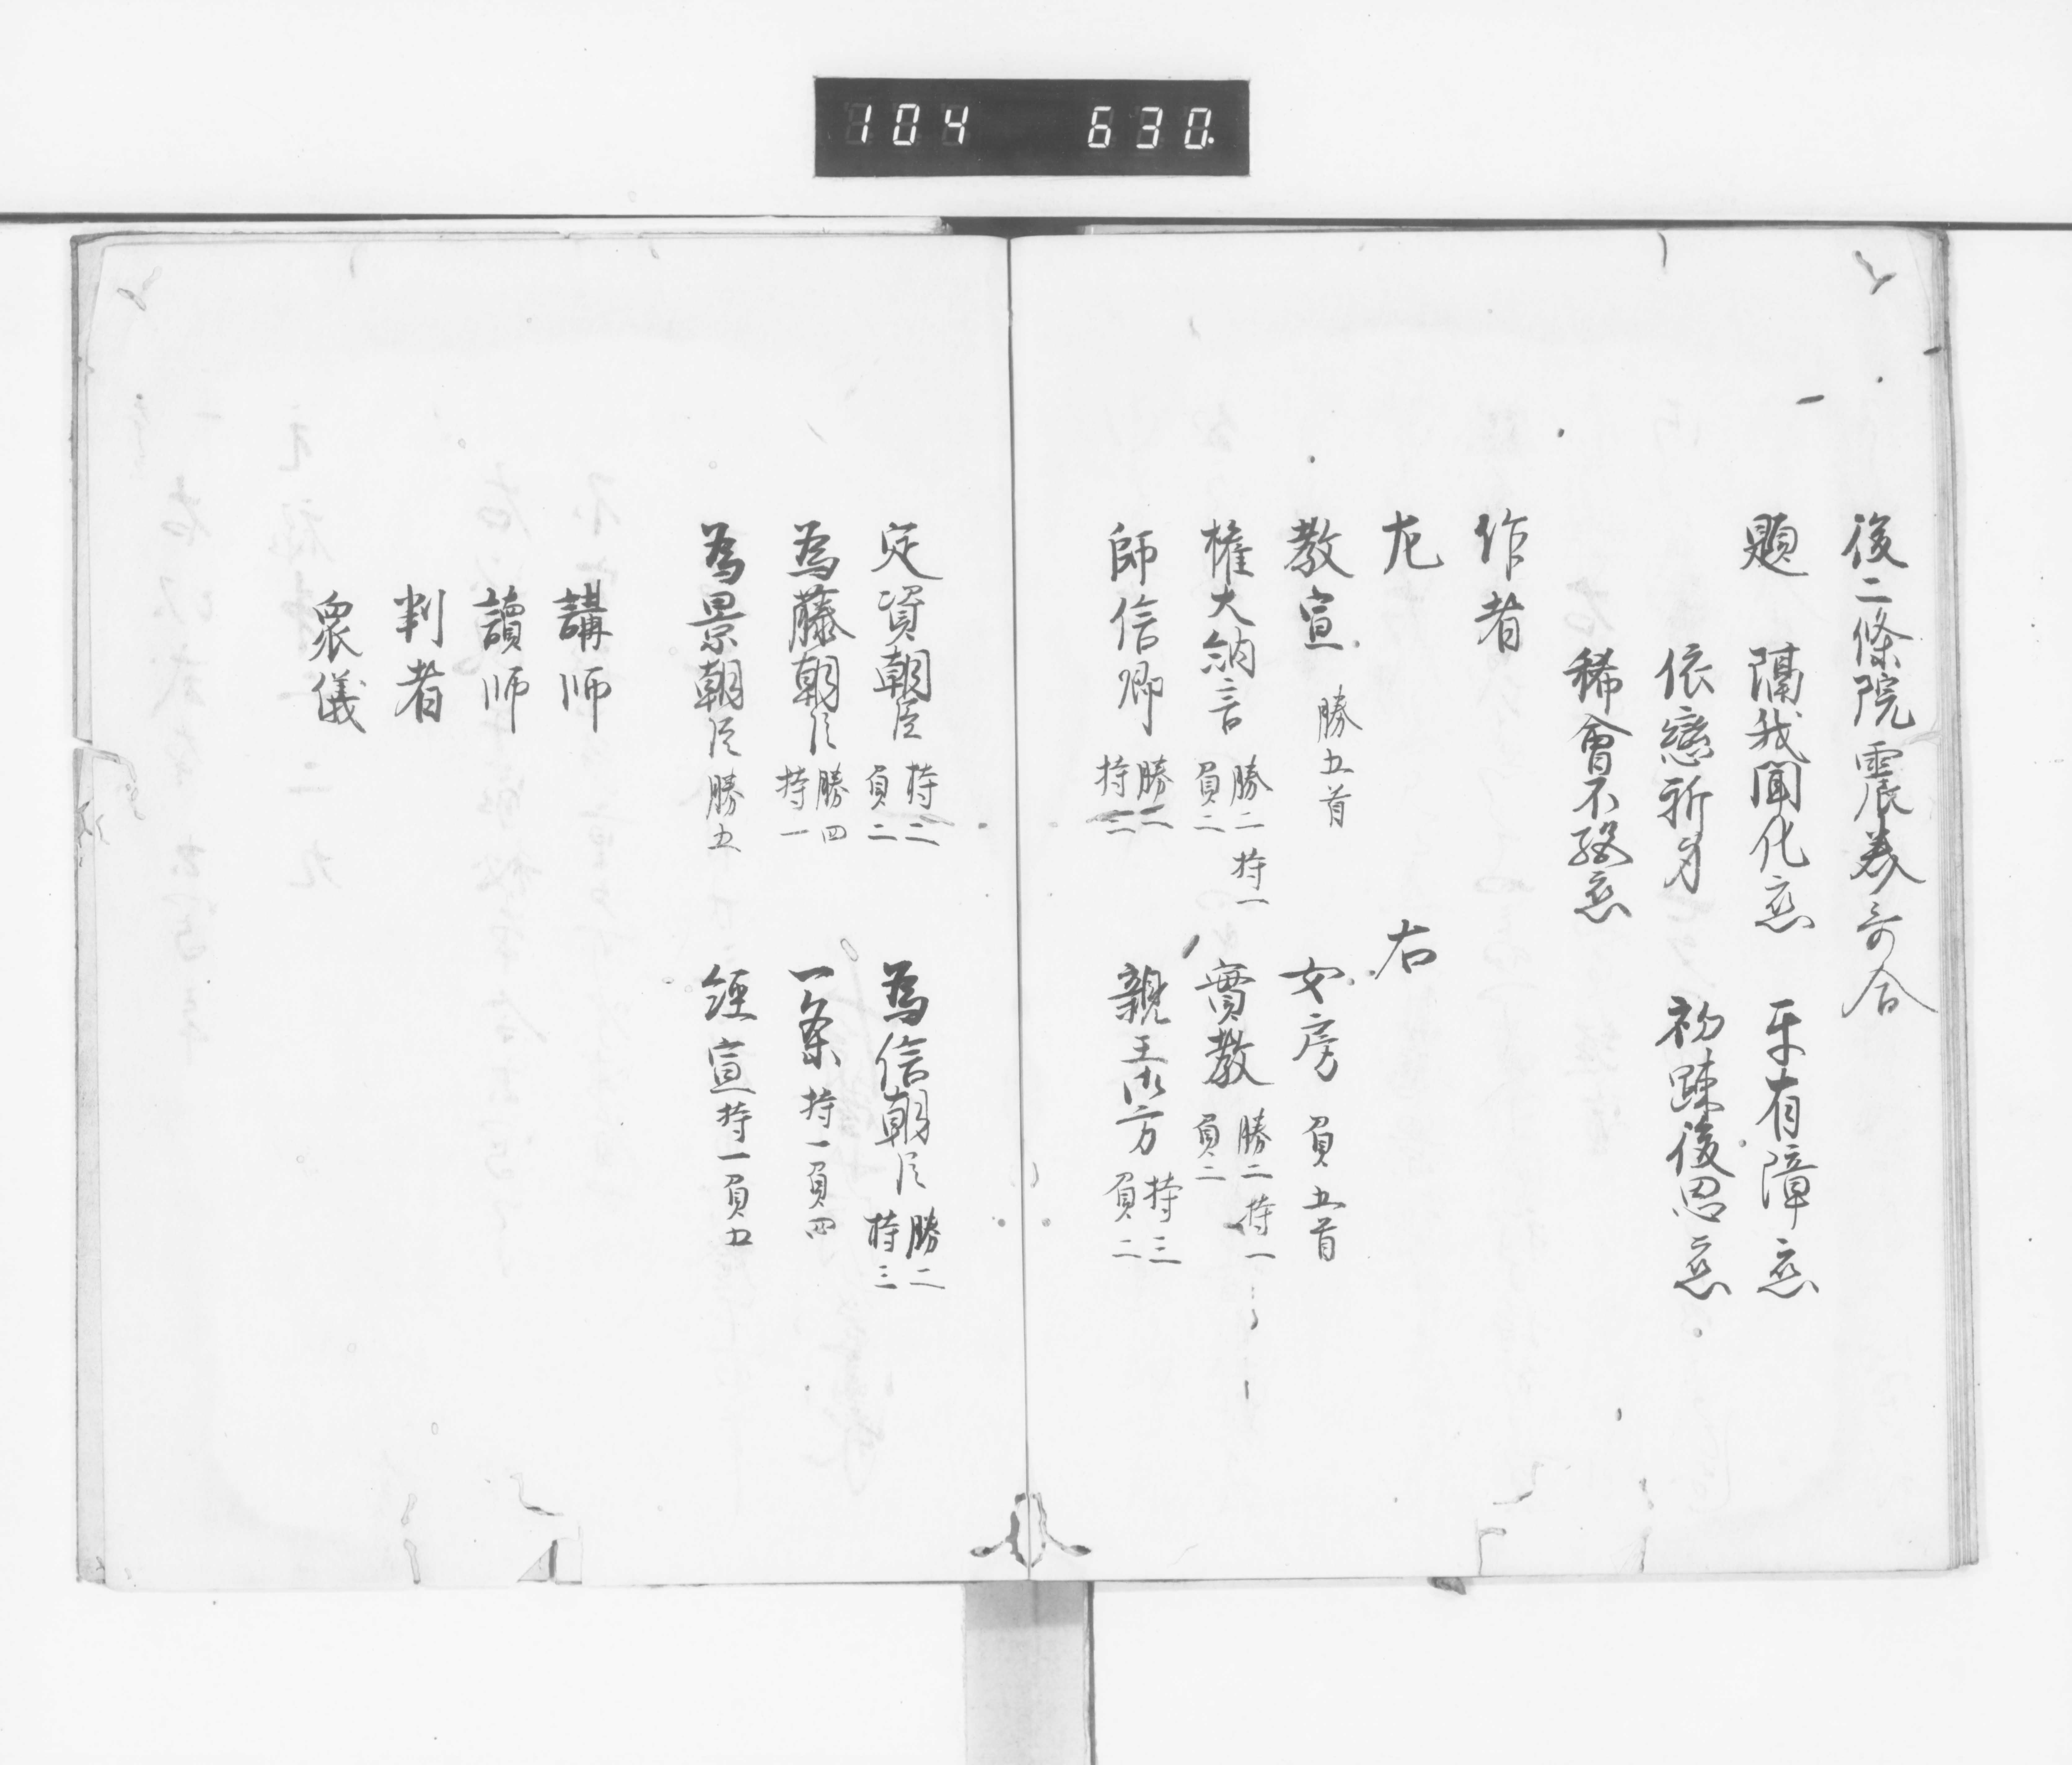 104 630
後二條院震筆哥合
題 隔我聞他恋 牙有障恋
依戀祈身 初疎後思恋
稀會不絶恋
作者
左 右
教宣 勝五首 女房 負五首
權大納言 勝二 持一 負二 實教 勝二 持一 負二
師信卿 勝二 持三 親王御方 持三 負二
定資朝臣 持三 負二 為信朝臣 勝二 持三
為藤朝臣 勝四 持一 一条 持一負四
為景朝臣 勝五 經宣 持一負五
講師
讀師
判者
衆儀